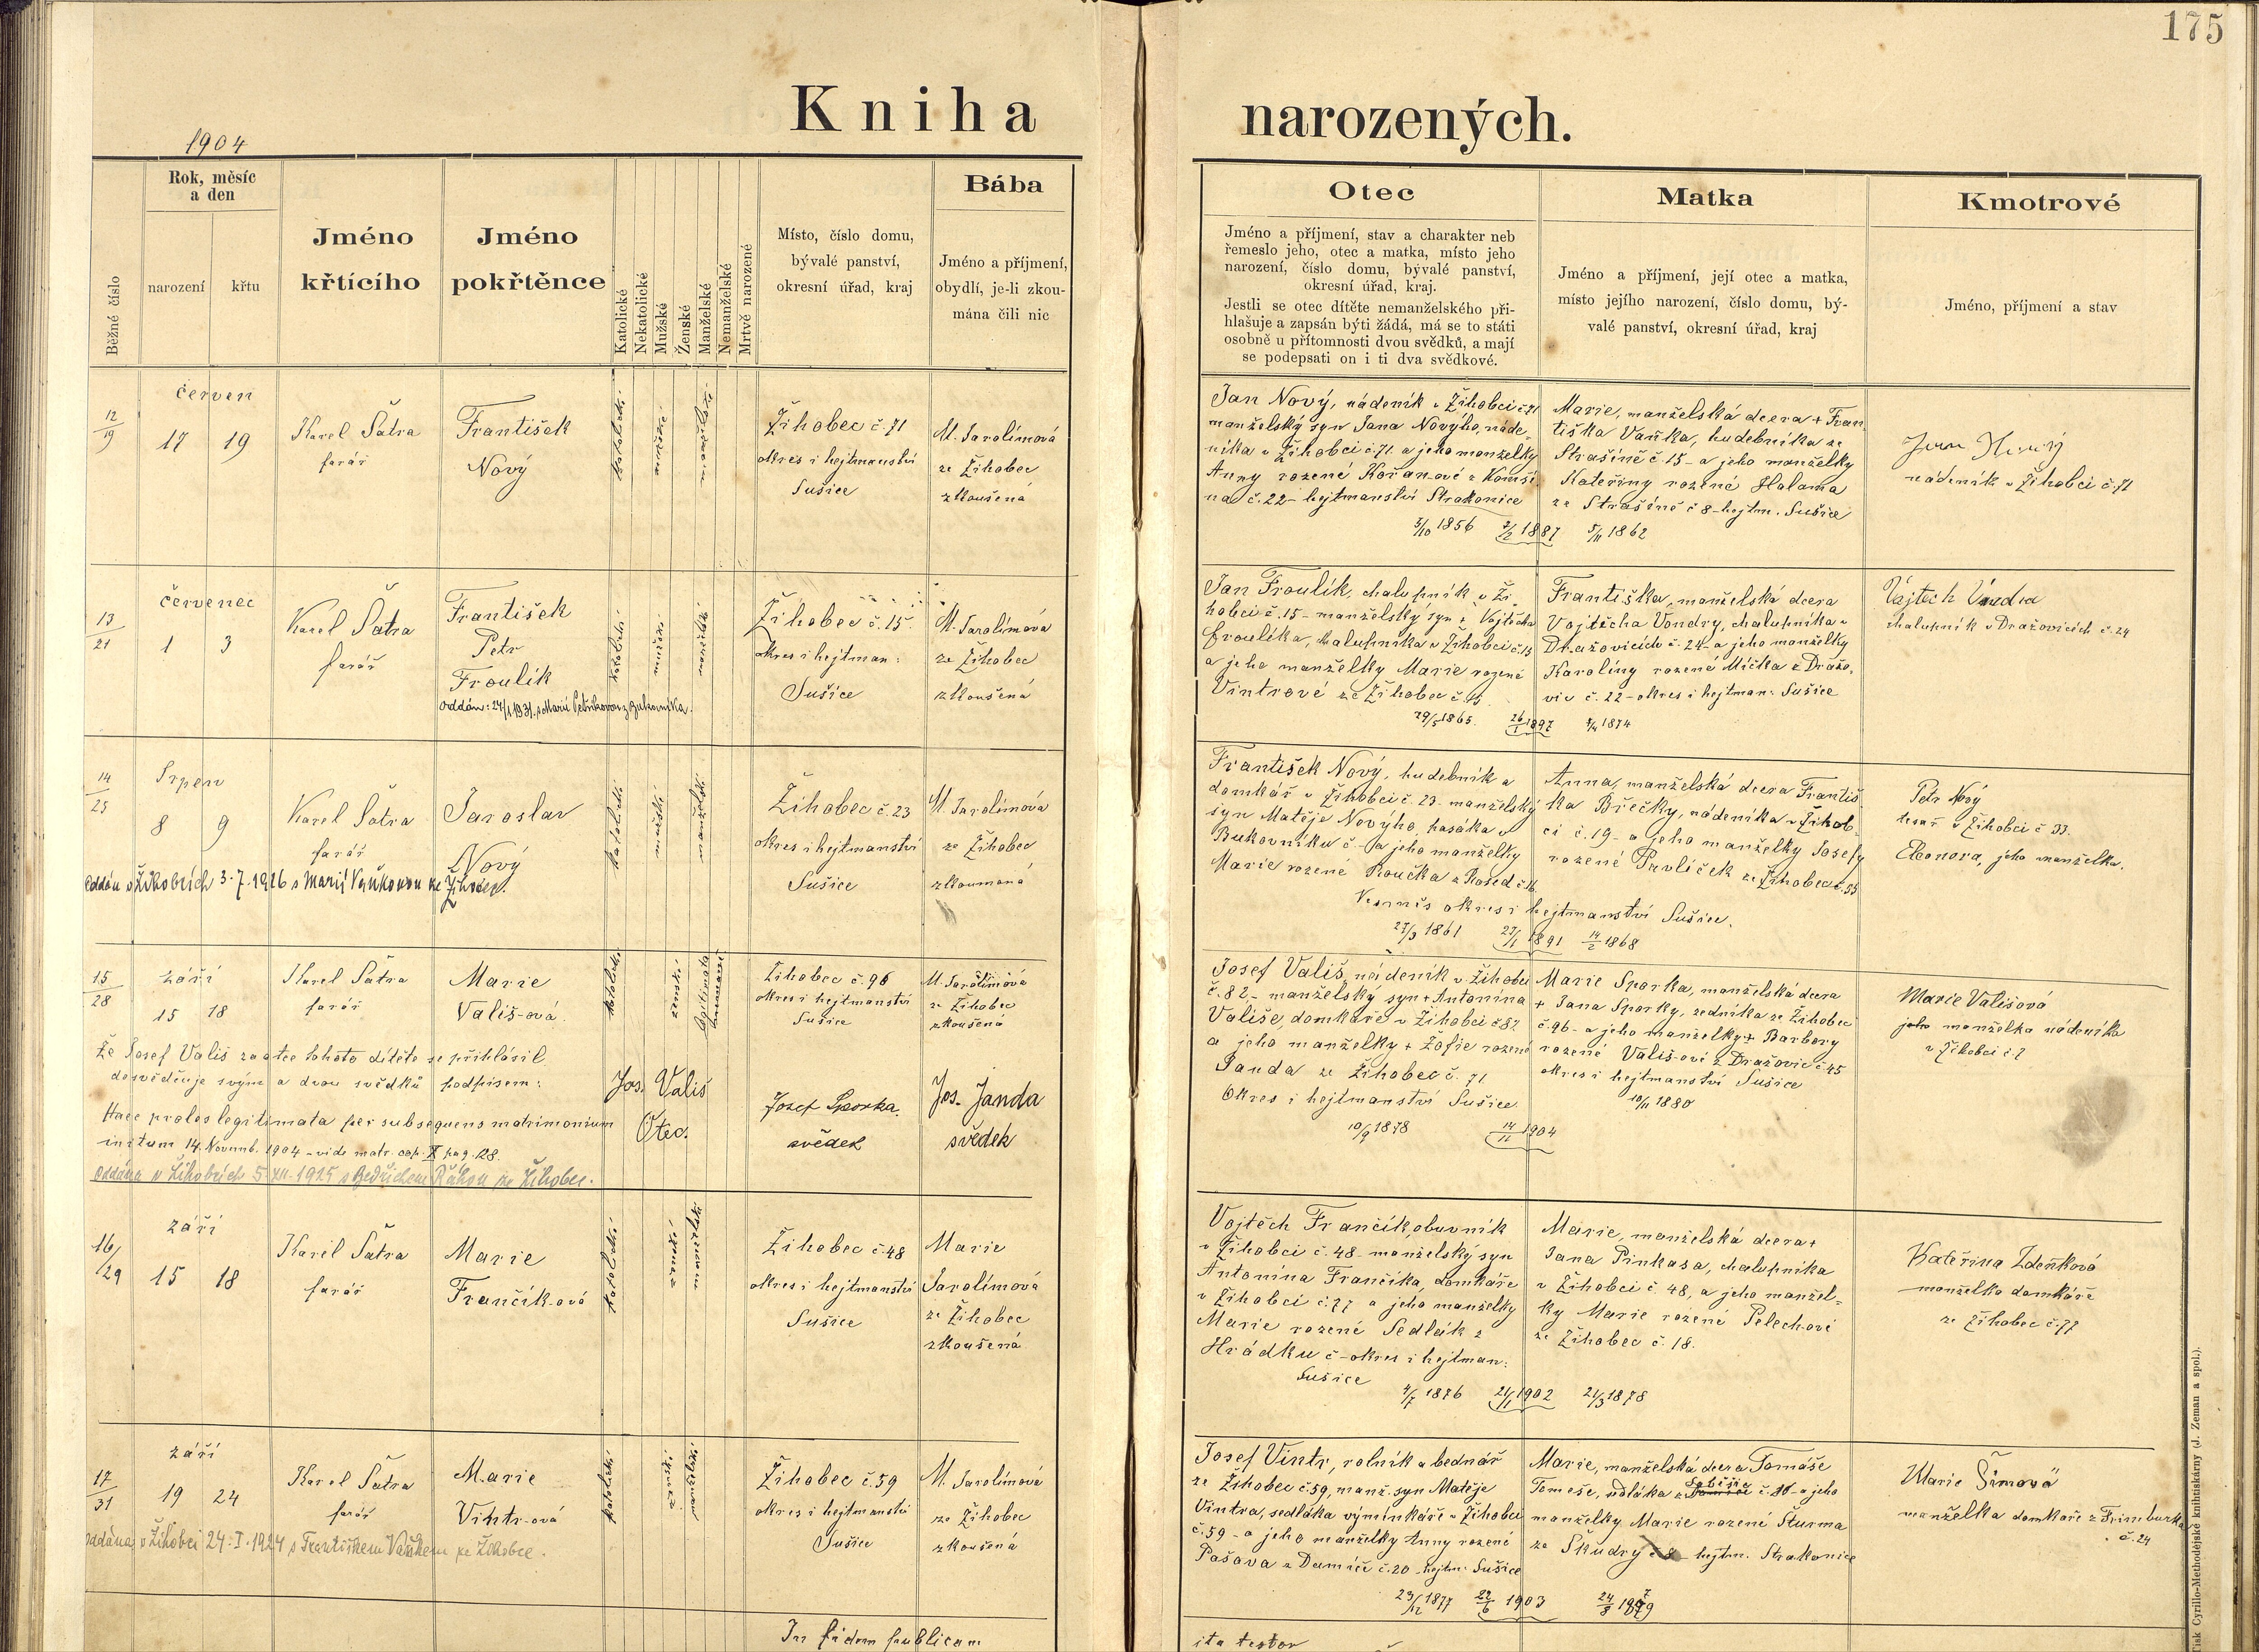 175
Kniha narozených.
1904
Běžné číslo
Rok, měsíc
a den
narození
křtu
Jméno
křtícího
Jméno
pokřtěnce
Katolické
Nekatolické
Mužské
Ženské
Manželské
Nemanželské
Mrtvě narozené
Místo, číslo domu,
bývalé panství,
okresní úřad, kraj
Bába
Jméno a příjmení,
obydlí, je-li zkou-
mána čili nic
Otec
Jméno a příjmení, stav a charakter neb
řemeslo jeho, otec a matka, místo jeho
narození, číslo domu, bývalé panství,
okresní úřad, kraj.
Jestli se otec dítěte nemanželského při-
hlašuje a zapsán býti žádá, má se to státi
osobně u přítomnosti dvou svědků, a mají
se podepsati on i ti dva svědkové.
Matka
Jméno a příjmení, její otec a matka,
místo jejího narození, číslo domu, bý-
valé panství, okresní úřad, kraj
Kmotrové
Jméno, příjmení a stav
12/19
červen
17 19
Karel Šatra
farář
František
Nový
katolické
mužské
manželské
Žihobec č. 71
okres i hejtmanství
Sušice
M. Jarolímová
ze Žihobec
zkoušená
Jan Nový, nádeník v Žihobci č 71
manželský syn Jana Nového, náde-
níka v Žihobci č. 71. a jeho manželky
Anny rozené Kořan-ové z Komši
na č. 22 - hejtmanství Strakonice
3/10 1856 2/2 1887 5/11 1862
Marie, manželská dcera + Fran
tiška Vaňka, hudebníka ze
Strašíně č. 15 - a jeho manželky
Kateřiny rozené Halama
ze Strašíně č 8 - hejtm. Sušice
Jan Nový
nádeník v Žihobci č. 71
13/21
červenec
1 3
Karel Šatra
farář
František
Petr
Froulík
oddán: 24/1 1931. s Marií Petříkovou z Bukovníka.
katolické
mužské
manželské
Žihobec č. 15.
okres i hejtman:
Sušice
M. Jarolímová
ze Žihobec
zkoušená
Jan Froulík, chalupník v Ži
hobci č. 15 - manželský syn + Vojtěcha
Froulíka, chalupníka v Žihobci č 15
a jeho manželky Marie rozené
Vintrové ze Žihobec č.
29/5 1865. 26/1 1897 1874
Františka, manželská dcera
Vojtěcha Vondry, chalupníka v
Dražovicích č. 24 - a jeho manželky
Karolíny rozené Míčka z Dražo-
vic č. 22 - okres i hejtman: Sušice
Vojtěch Vondra
chalupník v Dražovicích č. 24
14/25
Srpen
8 9
Karel Šatra
farář
Jaroslav
Nový
oddán v Žihobcích 3.7.1926 s Marií Vaňkovou ze Žihobec.
katolické
mužské
manželské
Žihobec č. 23
okres i hejtmanství
Sušice
M. Jarolímová
ze Žihobec
zkoumaná
František Nový, hudebník a
domkář v Žihobci č. 23. manželský
syn Matěje Nového, pasáka v
Bukovníku č - a jeho manželky
Marie rozené Roučka z Rosed č. 16
Vesměs okres i hejtmanství Sušice.
27/3 1861 27/1 1891 14/2 1868
Anna, manželská dcera Františ
ka Břečky, nádeníka v Žihob-
ci č. 19 - a jeho manželky Josefy
rozené Pavlíček ze Žihobec č. 35
Petr Nový
tesař v Žihobci č 33.
Eleonora, jeho manželka.
15/28
září
15 18
Karel Šatra
farář
Marie
Vališ-ová.
katolické
ženské
legitimata
Žihobec č. 96
okres i hejtmanství
Sušice
M. Jarolímová
ze Žihobec
zkoušená
Že Josef Vališ za otce tohoto dítěte se přihlásil
dosvědčuje svým a dvou svědků podpisem:
Jos. Vališ
Otec.
Josef Sporka.
svědek
Jos. Janda
svědek
Haec proles legitimata per subsequens matrimonium
initum 14. Novemb. 1904 - vide matr. cop. II pag. 128.
Oddána v Žihobcích 5.XII.1925 s Bedřichem Ráhou ze Žihobec.
Josef Vališ, nádeník v Žihobci
č. 82, - manželský syn + Antonína
Vališe, domkáře v Žihobci č 82
a jeho manželky + Žofie rozené
Janda ze Žihobec č. 71
okres i hejtmanství Sušice.
10/9 1878 14/11 1904
Marie Sporka, manželská dcera
+ Jana Sporky, zedníka ze Žihobec
č. 96 - a jeho manželky + Barbory
rozené Vališ-ové z Dražovic č 45
okres i hejtmanství Sušice
10/11 1880
Marie Vališová
jeho manželka nádeníka
v Žihobci č. 7
16/29
září
15 18
Karel Šatra
farář
Marie
Frančík-ová
katolické
ženské
manželské
Žihobec č. 48
okres i hejtmanství
Sušice
Marie
Jarolímová
ze Žihobec
zkoušená
Vojtěch Frančík, obuvník
v Žihobci č. 48 - manželský syn
Antonína Frančíka, domkáře
v Žihobci č. 77 a jeho manželky
Marie rozené Sedlák z
Hrádku č - okres i hejtman:
Sušice
4/7 1876 21/1 1902 21/3 1878
Marie, manželská dcera +
Jana Pinkasa, chalupníka
v Žihobci č. 48, a jeho manžel-
ky Marie rozené Pelechové
ze Žihobec č. 18.
Kateřina Zdeňková
manželka domkáře
ze Žihobec č. 77
17/31
září
19 24
Karel Šatra
farář
Marie
Vintr-ová
Oddána v Žihobci 24.I.1924 s Františkem Vaňkem ze Žihobce.
katolické
ženské
manželské
Žihobec č. 59
okres i hejtmanství
Sušice
M. Jarolímová
ze Žihobec
zkoušená
Josef Vintr, rolník a bednář
ze Žihobec č. 59, manž. syn Matěje
Vintra, sedláka výminkáře v Žihobci
č. 59 - a jeho manželky Anny rozené
Pašava z Damíče č. 20 - hejtm: Sušice
23/12 1877 22/6 1903 24/8 1879
Marie, manželská dcera Tomáše
Tomeše, sedláka z č. 16 - a jeho
manželky Marie rozené Šturma
ze Škudry č 8 - hejtm. Strakonice
Marie Šímová
manželka domkáře z Frimburka
č. 24
In fidem publicam
ita testor
Tisk Cyrillo-Methodějské knihtiskárny (J. Zeman a spol.).